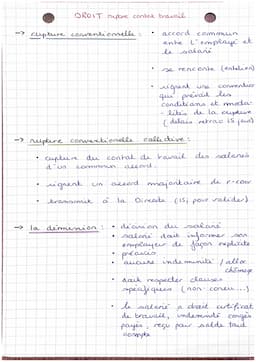 DROIT rupture contrat travail
→ rupture conventionnelle : • accord commun
entre l'employé et
le salarié
• se rencontre (entretien)
• signent une convention
qui prévoit les
conditions et moda-
lités de la rupture
(délais rétrac 15 jours)
→ rupture conventionnelle collective :
• rupture du contrat de travail des salariés
d'un commun accord.
• signent un accord majoritaire de
• transmit à la Direccte (15j pour valider)
→ la démission : • décision du salarié
• salarié doit informer son
employeur de façon explicite
• préavis
• aucune indemnité / alloc
chômage
• doit respecter clauses
spécifiques (non conc...)
• le salarié a droit certificat
de travail, indemnité congés
payés, reçu pour solde tout
compte